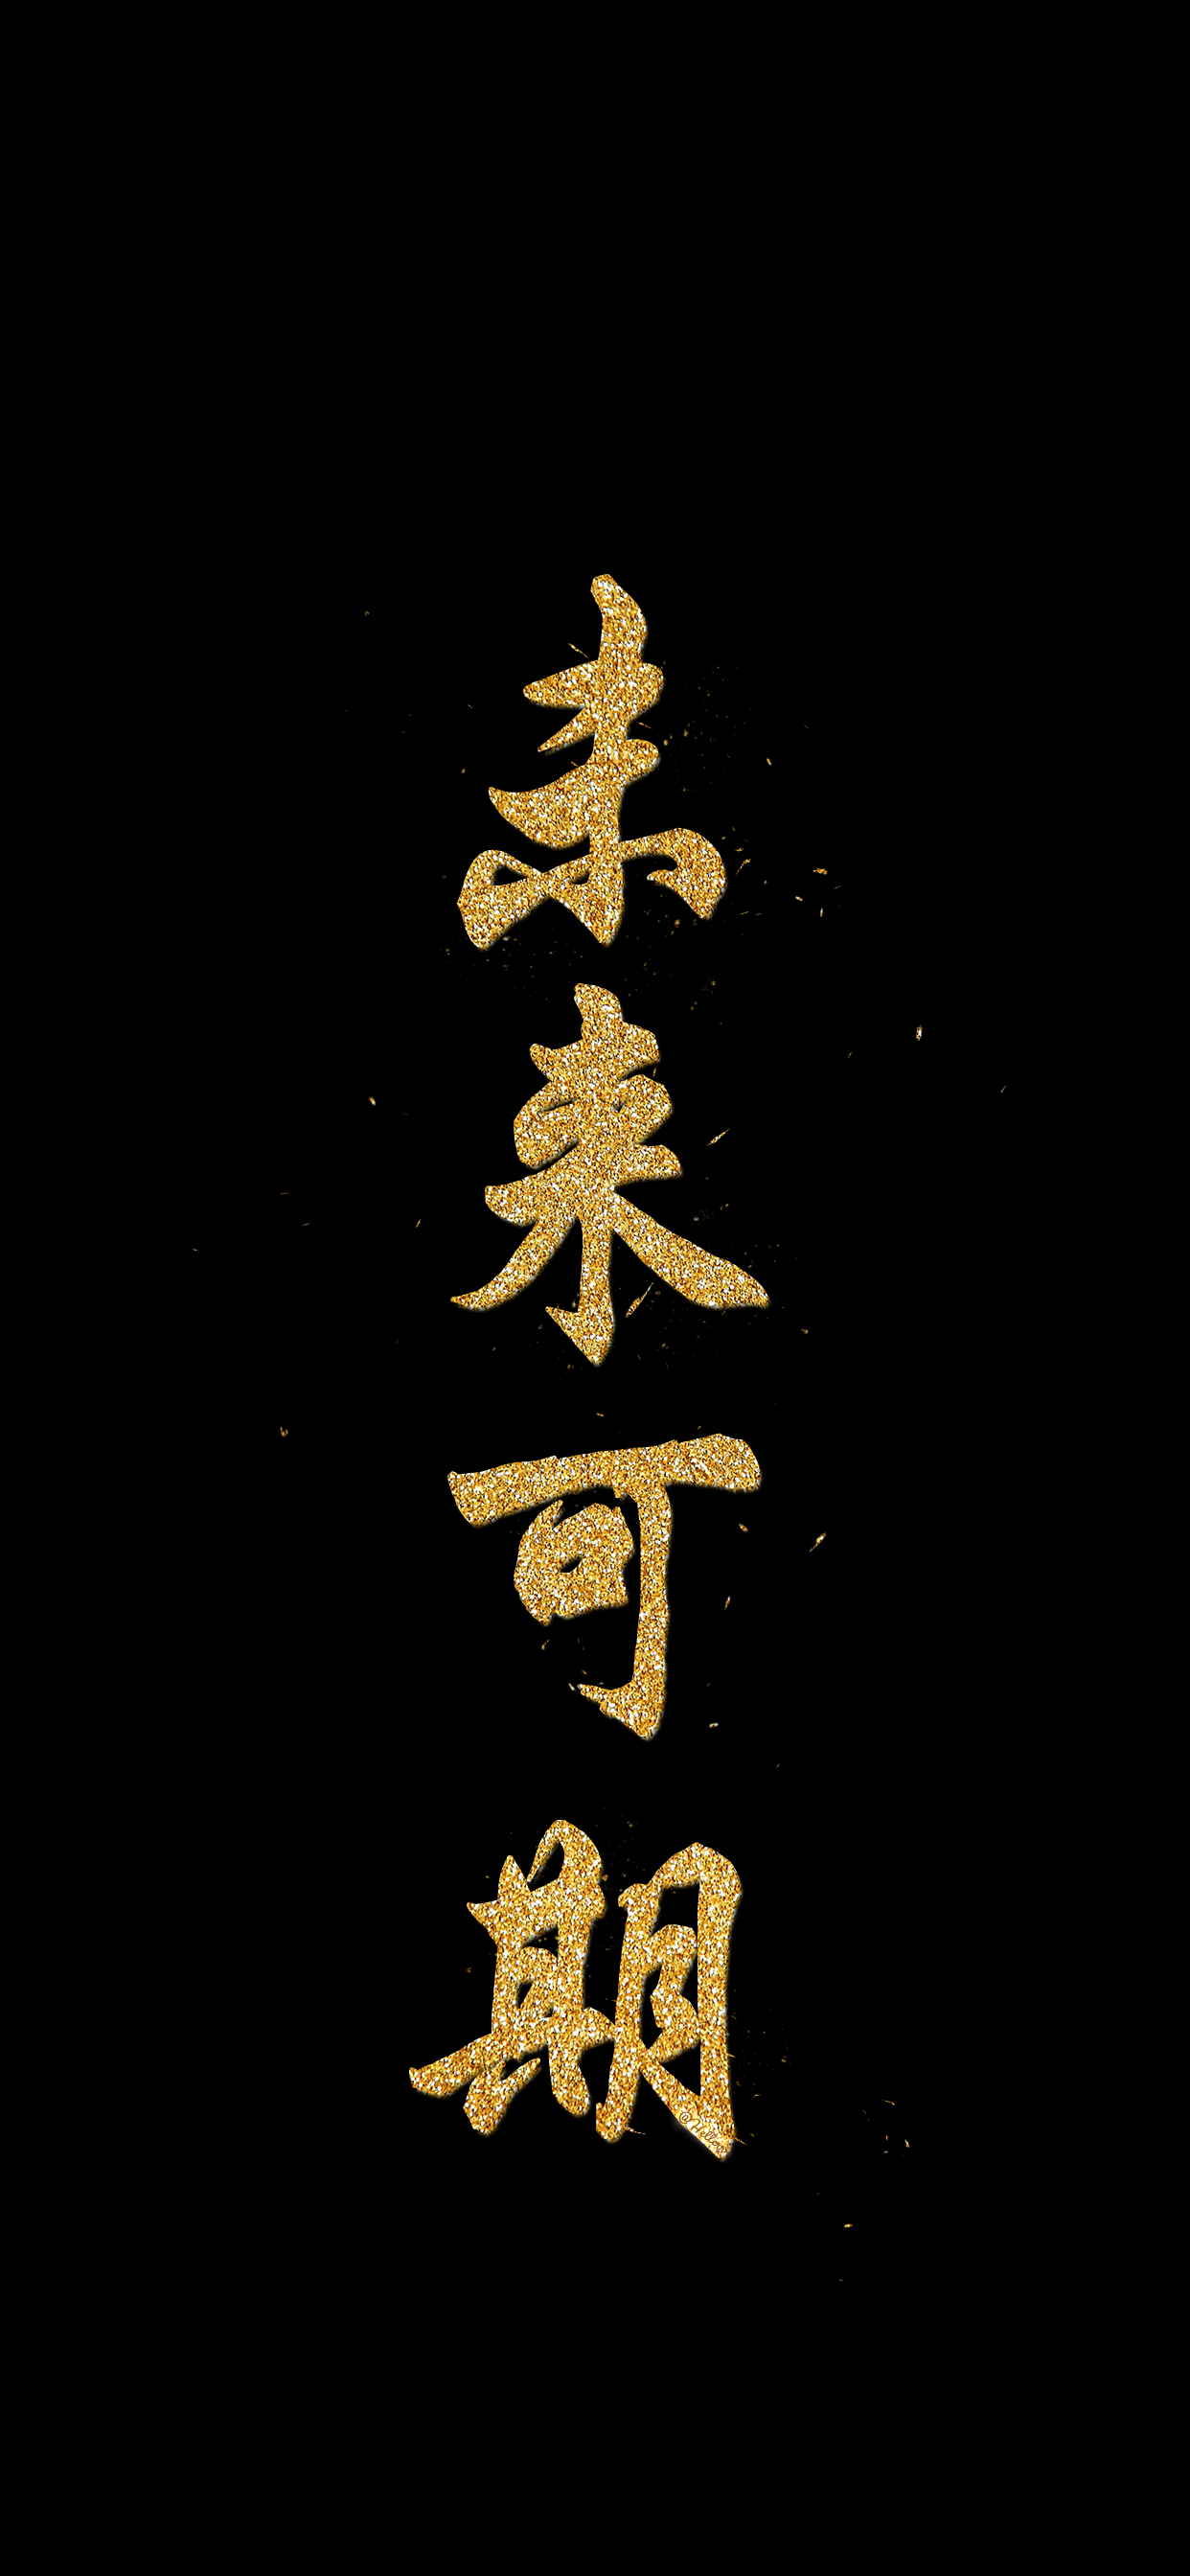 未来可期
@Hello